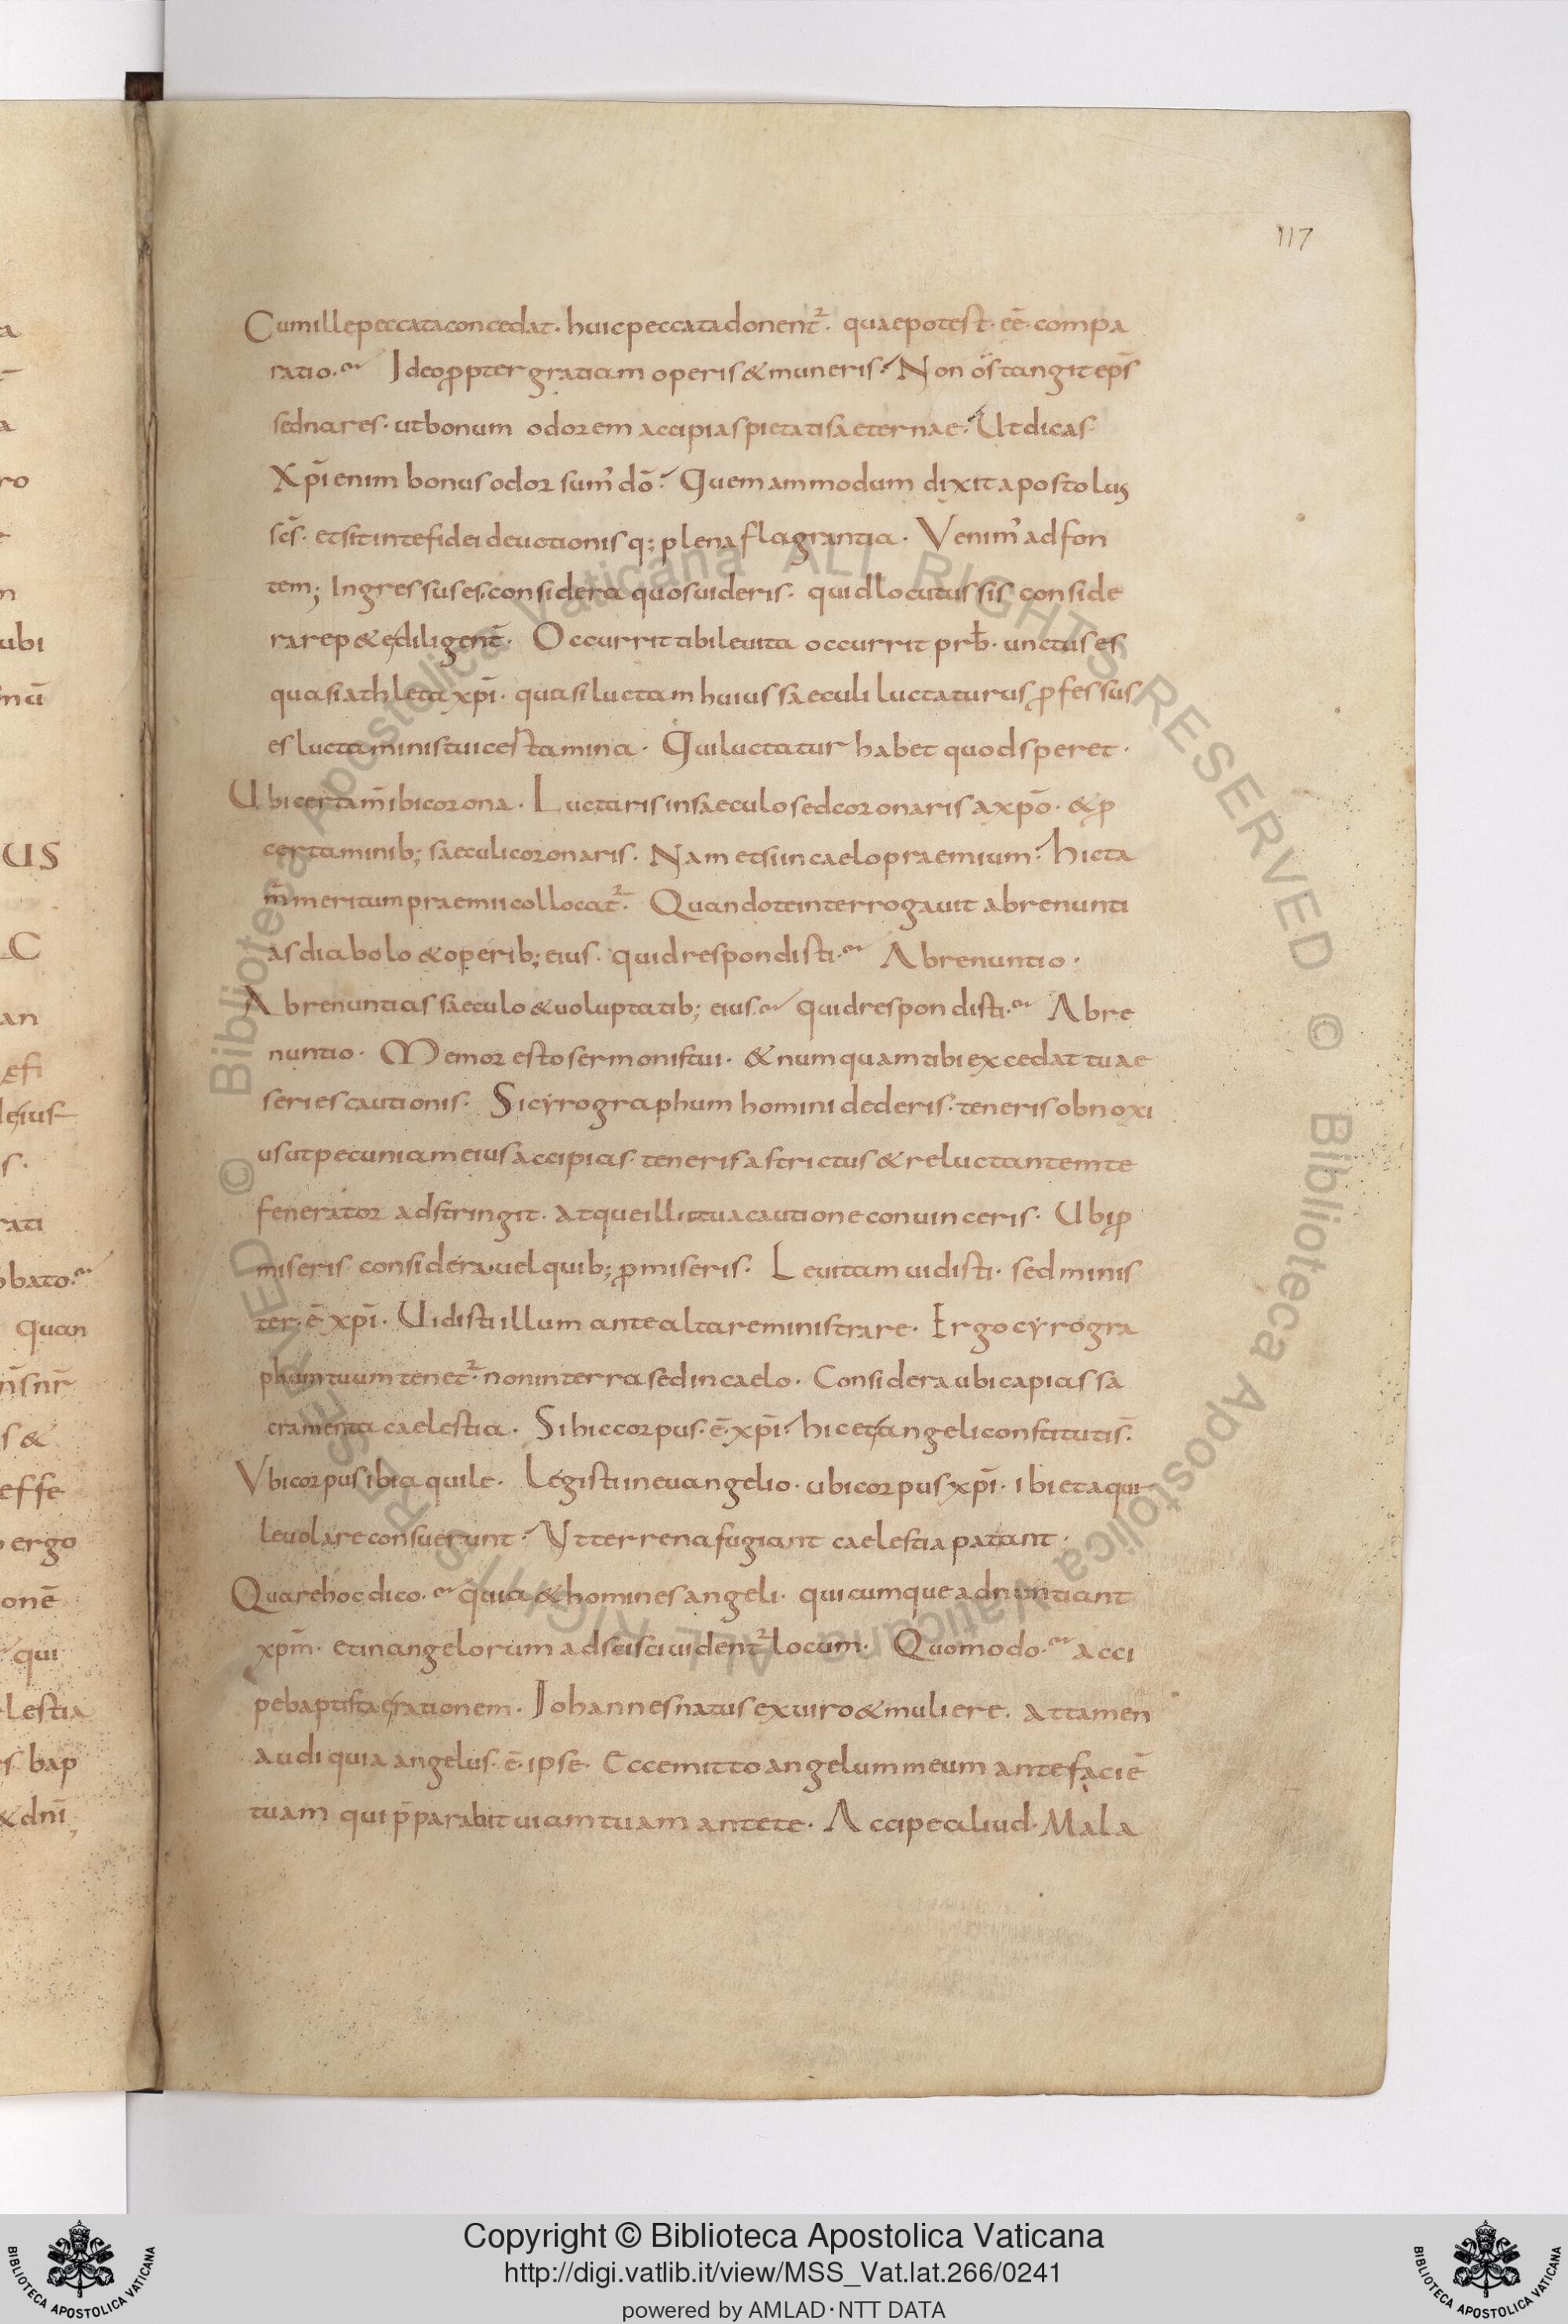 117
Cum ille peccata concedat · huic peccata donent᷑ · quae potest · eē · compa
ratio · Ideo ꝓpter gratiam operis & muneris · Non os tangit ep̄s
sed nares · ut bonum odorem accipias pietatis aeternae · Ut dicas
Xp̄i enim bonus odor sum' dō · Quemammodum dixit apostolus
sc̄s · et sit in te fidei deuotionisq; plena flagrantia · Venim' ad fon
tem; Ingressus es, considera quos uideris · quid locutus sis conside
ra rep&e diligent̄ · Occurrit tibi leuita occurrit prb̄ · unctus es
quasi athleta xp̄i · quasi luctam huius saeculi luctaturus ꝓfessus
es luctaminis tui certamina · Qui luctatur habet quod speret ·
Ubi certam̄ ibi corona · Luctaris in saeculo sed coronaris a xp̄o · & ꝓ
certaminib; saeculi coronaris · Nam etsi in caelo praemium · hic ta
m̄ meritum praemii collocat᷑ · Quando te interrogauit abrenunti
as diabolo & operib; eius · quid respondisti · Abrenuntio ·
Abrenuntias saeculo & uoluptatib; eius · quid respondisti · Abre
nuntio · Memor esto sermonis tui · & numquam tibi excedat tuae
series cautionis · Si cyrographum homini dederis · teneris obnoxi
us ut pecuniam eius accipias · teneris astrictus & reluctantem te
fenerator adstringit · atque illic tua cautione conuinceris · Ubi ꝓ
miseris considera uel quib; ꝓmiseris · Leuitam uidisti · sed minis
ter · ē xp̄i · Uidisti illum ante altare ministrare · Ergo cyrogra
phum tuum tenet᷑ · non in terra sed in caelo · Considera ubi capias sa
cramenta caelestia · Si hic corpus · ē · xp̄i · hic et angeli constituti s̄ ·
Vbi corpus ibi aquile · Legisti in euangelio · ubi corpus xp̄i · ibi et aqui
le uolare consuerunt · Ut terrena fugiant caelestia patant ·
Quare hoc dico · quia & homines angeli · quicumque adnuntiant
xpm̄ · et in angelorum adscisci uident᷑ locum · Quomodo · acci
pe baptistae rationem · Iohannes natus ex uiro & muliere · attamen
audi quia angelus · ē · ipse · Ecce mitto angelum meum ante faciē
tuam qui p̄parabit uiam tuam ante te · Accipe aliud · Mala
© Biblioteca Apostolica Vaticana ALL RIGHTS RESERVED © Biblioteca Apostolica Vaticana ALL RIGHTS RESERVED
Copyright © Biblioteca Apostolica Vaticana
http://digi.vatlib.it/view/MSS_Vat.lat.266/0241
powered by AMLAD·NTT DATA
BIBLIOTECA APOSTOLICA VATICANA
BIBLIOTECA APOSTOLICA VATICANA